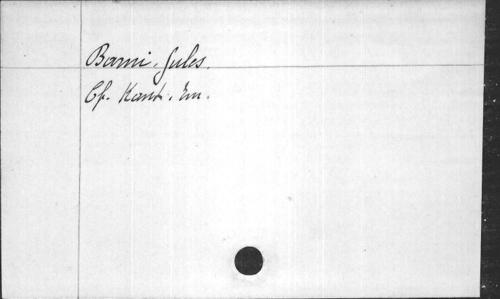 Barni, Jules.
Cf. Kant, Em.